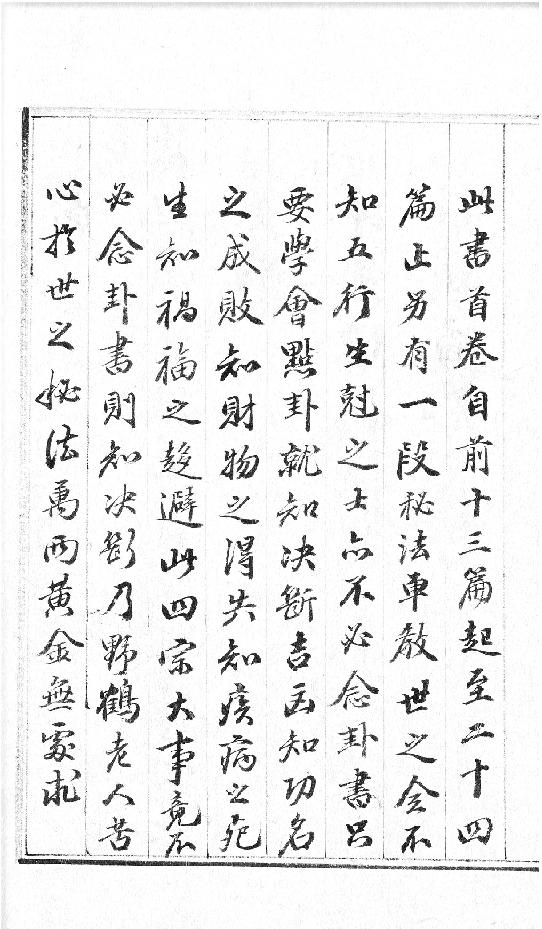 此書首卷自前十三篇起至二十四
篇止另有一段秘法車教世之全不
知五行生尅之士亦不必念卦書只
要學會點卦就知决斷吉凶知功名
之成敗知財物之得失知疾病之死
生知禍福之趍避此四宗大事竟不
必念卦書則知决斷乃野鶴老人苦
心於世之秘法萬両黃金無處求